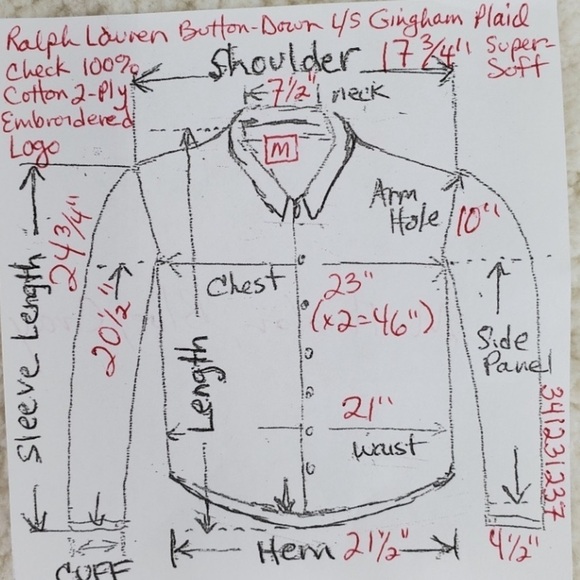 Ralph Lauren Button-Down L/S Gingham Plaid
Check 100% Shoulder 17 3/4" Super-
Cotton 2-Ply Soft
Embroidered 7 1/2" neck
Logo
M
Arm
Hole 10"
24 3/4"
Sleeve Length
20 1/2"
Chest 23"
(x2=46")
Length
Side
Panel
21"
Waist
341231237
Hem 21 1/2"
4 1/2"
CUFF